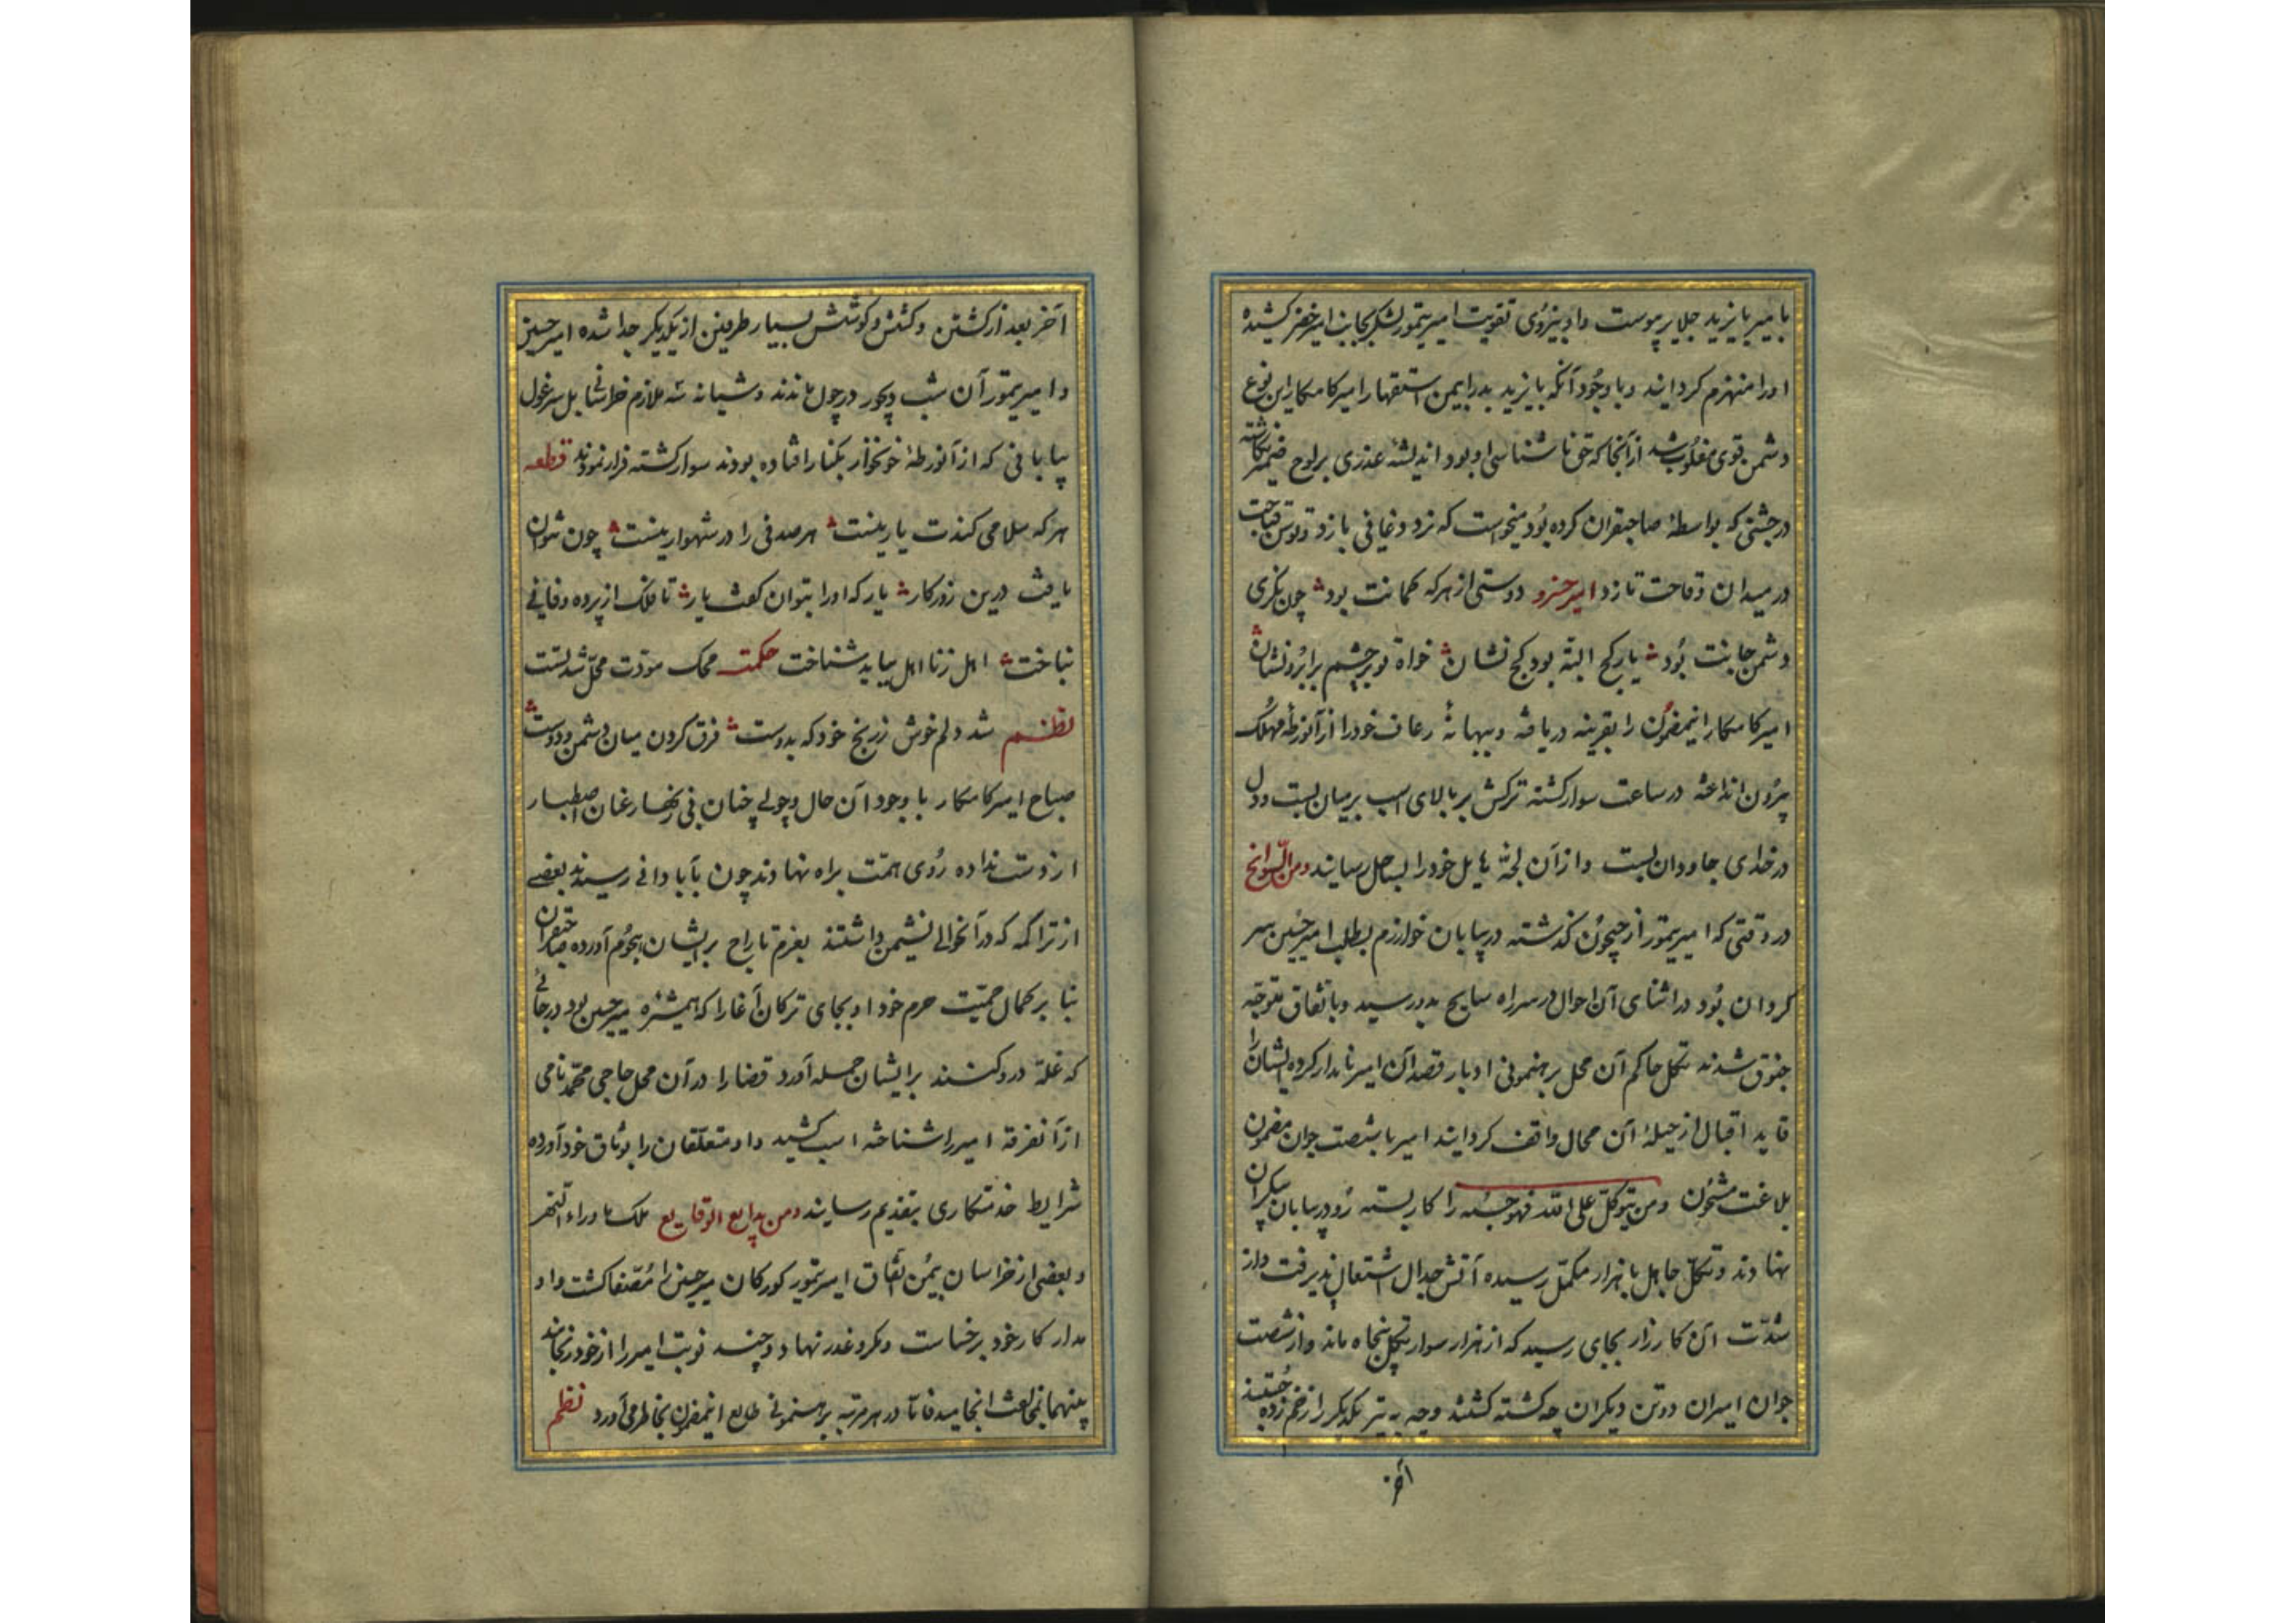 بامیر بایزید جلایر پیوست و او بنیروی تقویت امیر تیمور لشکر بجانب امیر خضر کشیده
اورا منهزم کردانید و با وجود آنکه بایزید بدرایمن استقهار امیر کامکار این نوع
دشمن قوی مغلوب شد ازآنجا که حق ناشناسی او بود اندیشهٔ عذری بر لوح ضمیر نکاشته
درجشنی که بواسطهٔ صاحبقران کرده بود میخواست که نرد دغایی بازد و توسن قباحت
در میدان وقاحت تازد امیر خسرو دوستی از هرکه کمانت بود چون نکری
دشمن جانت بود یار کج البته بود کج نشان خواه تو بر چشم بر ابرو نشان
امیر کامکار اینمضمون را بقرینه دریافته و ببهانهٔ رعاف خودرا از آنورطهٔ مهلک
بیرون انداخته در ساعت سوار کشته ترکش بر بالای اسب بر میان بست و دل
در خدای جاودان بست و از آن لجهٔ هایل خودرا بساحل رسانید ومن السوانح
در وقتی که امیر تیمور از جیحون کذشته در بیابان خوارزم بطلب امیر حسین سر
کردان بود در اثنای آن احوال در سر راه سایح بدو رسید و باتفاق متوجه
خیوق شدند تکل حاکم آن محل برهنمونی ادبار قصد آن امیر نامدار کرده ایشان را
قاید اقبال از حیلهٔ آن محال واقف کردانید امیر با شصت جوان مضمون
بلاغت مشحون ومن یتوکل علی الله فهو حسبه را کار بسته رو در بیابان بیکران
نهادند و تکل جاهل با هزار مکمل رسیده آتش جدال اشتعال پذیرفت و از
شدت آن کارزار بجای رسید که از هزار سوار تکل پنجاه ماند و از شصت
جوان امیران دوتن دیکران چه کشته کشتند و چه به تیر یکدیکر را زخم زده خستند
آخر
آخر بعد از کشتن و کشش و کوشش بسیار طرفین از یکدیکر جدا شده امیر حسین
و امیر تیمور آن شب دیجور در چول ماندند و شبانه سه ملازم خراسانی بل سر غول
بیابانی که از آنورطهٔ خونخوار بکنار افتاده بودند سوار کشته فرار نمودند قطعه
هر که سلامی کندت یار نیست هر صدفی را در شهوار نیست چون نتوان
یافت درین روزکار یار که اورا بتوان کفت یار تا فلک از پرده وفایی
نباخت اهل زنا اهل بباید شناخت حکمت محک مودت محل شدتست
نظم شد دلم خوش زرنج خود که بدوست فرق کردن میان دشمن و دوست
صباح امیر کامکار با وجود آن حال و چولی چنان فی زنهار عنان اصطبار
از دست نداده روی همت براه نهادند چون بآبادانی رسیدند بعضی
از تراکمه که در آنحوالی نشیمن داشتند بعزم تاراج بر ایشان هجوم آورده صاحبقران
بنا بر کمال حمیت حرم خود اوبجای ترکان آغارا که همشیرهٔ میرحسین بود در جائی
که غله درو کنند بر ایشان حمله آورد قضا را در آن محل حاجی محمد نامی
از آنفرقه امیررا شناخته اسب کشید و او متعلقان را بوثاق خود آورده
شرایط خدمتکاری بتقدیم رسانید ومن بدایع الوقایع ملک ماوراء النهر
و بعضی از خراسان بیمن اتفاق امیر تیمور کورکان میرحسین را مصفا کشت و او
مدار کار خود بر خساست و مکر و غدر نهاد و چند نوبت امیر را از خود رنجانید
بینهما بمخالفت انجامید فاما در هر مرتبه برهنمونی طالع اینمضمون بخاطر می آورد نظم